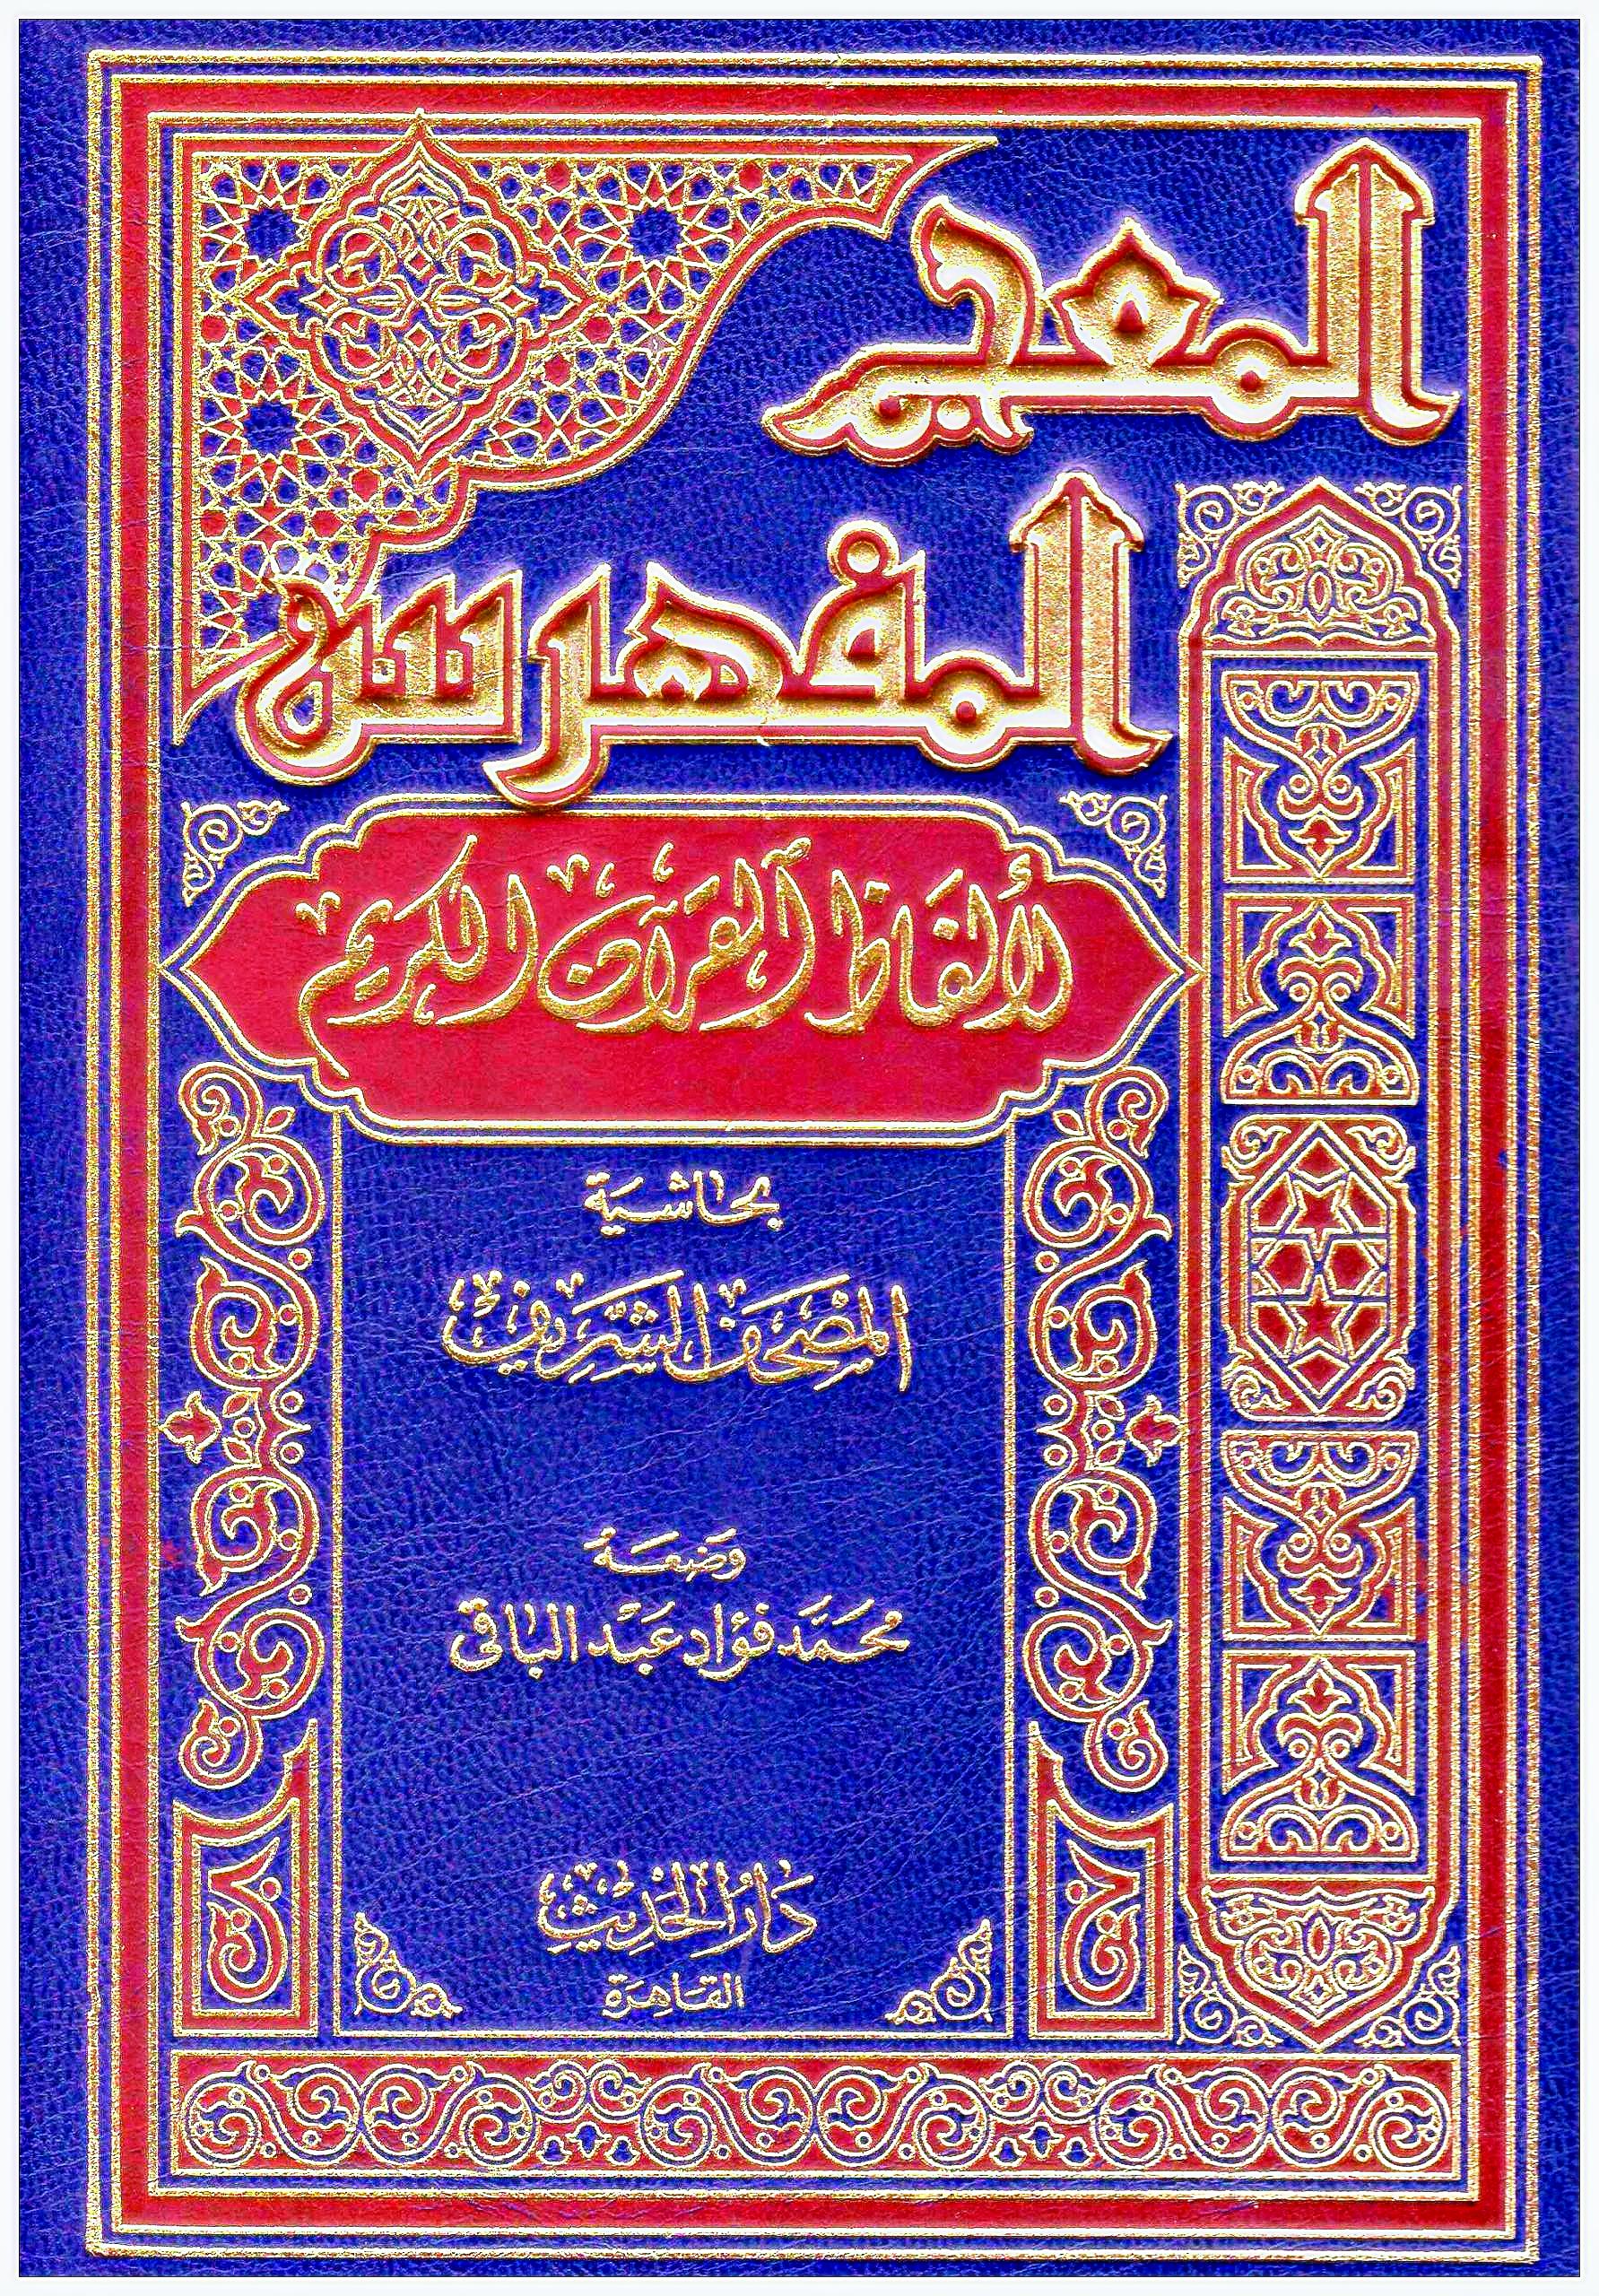 المعجم
المفهرس
لألفاظ القرآن الكريم
بحاشية
المصحف الشريف
وضعه
محمد فؤاد عبد الباقي
دار الحديث
القاهرة